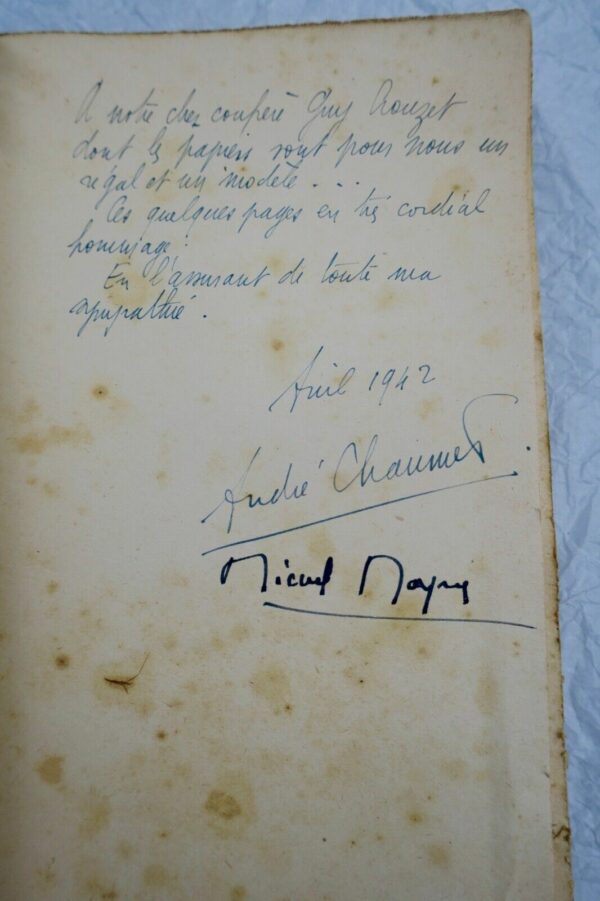 A notre cher confrère Guy Crouzet
dont les papiers sont pour nous un
régal et un modèle . . .
Ces quelques pages en très cordial
hommage :
En l'assurant de toute ma
sympathie .
Avril 1942
André Chaumet .
Michel